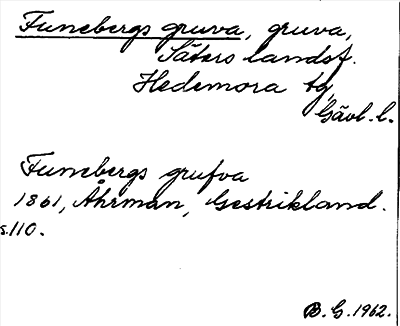 Funebergs gruva, gruva,
Säters landsf.
Hedemora tg,
Gävl. l.
Funebergs grufva
1861, Åhrman, Gestrikland.
s.110.
B. G. 1962.